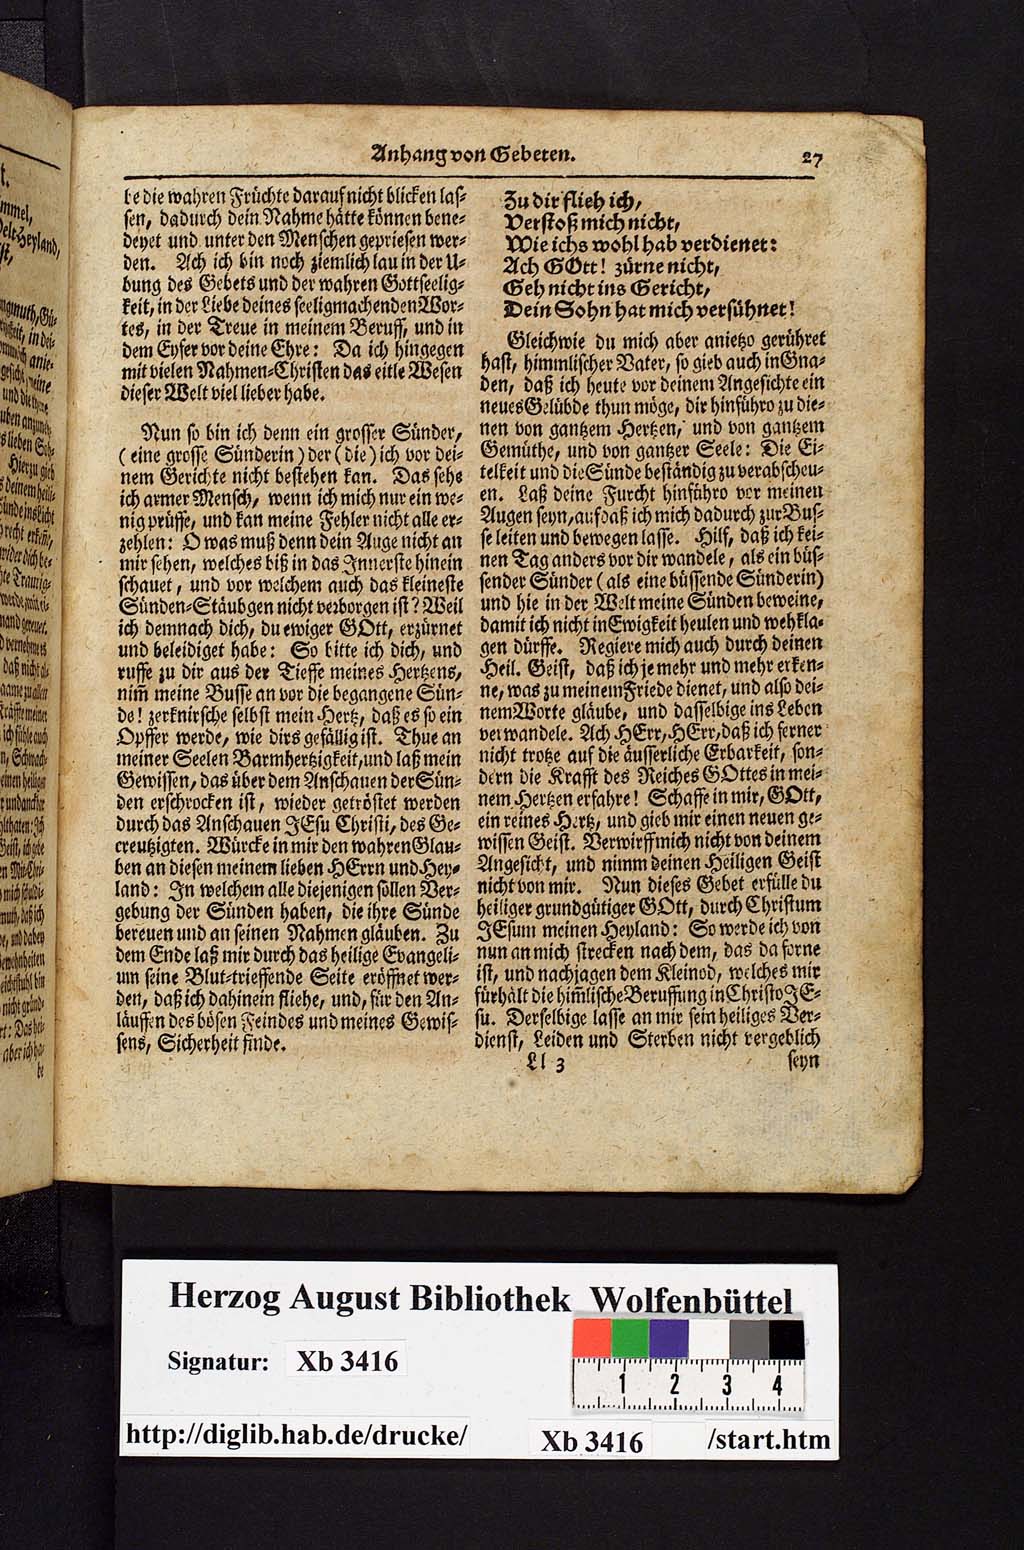 Anhang von Gebeten. 27
be die wahren Früchte darauf nicht blicken las-
sen, dadurch dein Nahme hätte können bene-
deyet und unter den Menschen gepriesen wer-
den. Ach ich bin noch ziemlich lau in der U-
bung des Gebets und der wahren Gottseelig-
keit, in der Liebe deines seeligmachenden Wor-
tes, in der Treue in meinem Beruff, und in
dem Eyfer vor deine Ehre: Da ich hingegen
mit vielen Nahmen-Christen das eitle Wesen
dieser Welt viel lieber habe.
Nun so bin ich denn ein grosser Sünder,
( eine grosse Sünderin ) der ( die ) ich vor dei-
nem Gerichte nicht bestehen kan. Das sehe
ich armer Mensch, wenn ich mich nur ein we-
nig prüffe, und kan meine Fehler nicht alle er-
zehlen: O was muß denn dein Auge nicht an
mir sehen, welches biß in das Innerste hinein
schauet, und vor welchem auch das kleineste
Sünden-Stäubgen nicht verborgen ist? Weil
ich demnach dich, du ewiger GOtt, erzürnet
und beleidiget habe: So bitte ich dich, und
ruffe zu dir aus der Tieffe meines Hertzens,
nim̃ meine Busse an vor die begangene Sün-
de! zerknirsche selbst mein Hertz, daß es so ein
Opffer werde, wie dirs gefällig ist. Thue an
meiner Seelen Barmhertzigkeit, und laß mein
Gewissen, das über dem Anschauen der Sün-
den erschrocken ist, wieder getröstet werden
durch das Anschauen JEsu Christi, des Ge-
creutzigten. Würcke in mir den wahren Glau-
ben an diesen meinem lieben HErrn und Hey-
land: In welchem alle diejenigen sollen Ver-
gebung der Sünden haben, die ihre Sünde
bereuen und an seinen Nahmen gläuben. Zu
dem Ende laß mir durch das heilige Evangeli-
um seine Blut-trieffende Seite eröffnet wer-
den, daß ich dahinein fliehe, und, für den An-
läuffen des bösen Feindes und meines Gewis-
sens, Sicherheit finde.
Zu dir flieh ich,
Verstoß mich nicht,
Wie ichs wohl hab verdienet:
Ach GOtt! zürne nicht,
Geh nicht ins Gericht,
Dein Sohn hat mich versühnet!
Gleichwie du mich aber anietzo gerühret
hast, himmlischer Vater, so gieb auch in Gna-
den, daß ich heute vor deinem Angesichte ein
neues Gelübde thun möge, dir hinführo zu die-
nen von gantzem Hertzen, und von gantzem
Gemüthe, und von gantzer Seele: Die Ei-
telkeit und die Sünde beständig zu verabscheu-
en. Laß deine Furcht hinführo vor meinen
Augen seyn, auf daß ich mich dadurch zur Bus-
se leiten und bewegen lasse. Hilf, daß ich kei-
nen Tag anders vor dir wandele, als ein büs-
sender Sünder ( als eine büssende Sünderin)
und hie in der Welt meine Sünden beweine,
damit ich nicht in Ewigkeit heulen und wehkla-
gen dürffe. Regiere mich auch durch deinen
Heil. Geist, daß ich je mehr und mehr erken-
ne, was zu meinem Friede dienet, und also dei-
nem Worte gläube, und dasselbige ins Leben
verwandele. Ach HErr, HErr, daß ich ferner
nicht trotze auf die äusserliche Erbarkeit, son-
dern die Krafft des Reiches GOttes in mei-
nem Hertzen erfahre! Schaffe in mir, GOtt,
ein reines Hertz, und gieb mir einen neuen ge-
wissen Geist. Verwirff mich nicht von deinem
Angesicht, und nimm deinen Heiligen Geist
nicht von mir. Nun dieses Gebet erfülle du
heiliger grundgütiger GOtt, durch Christum
JEsum meinen Heyland: So werde ich von
nun an mich strecken nach dem, das da forne
ist, und nachjagen dem Kleinod, welches mir
fürhält die him̃lische Beruffung in Christo JE-
su. Derselbige lasse an mir sein heiliges Ver-
dienst, Leiden und Sterben nicht vergeblich
Ll 3 seyn
Herzog August Bibliothek Wolfenbüttel
Signatur: Xb 3416
1 2 3 4
http://diglib.hab.de/drucke/ Xb 3416 /start.htm